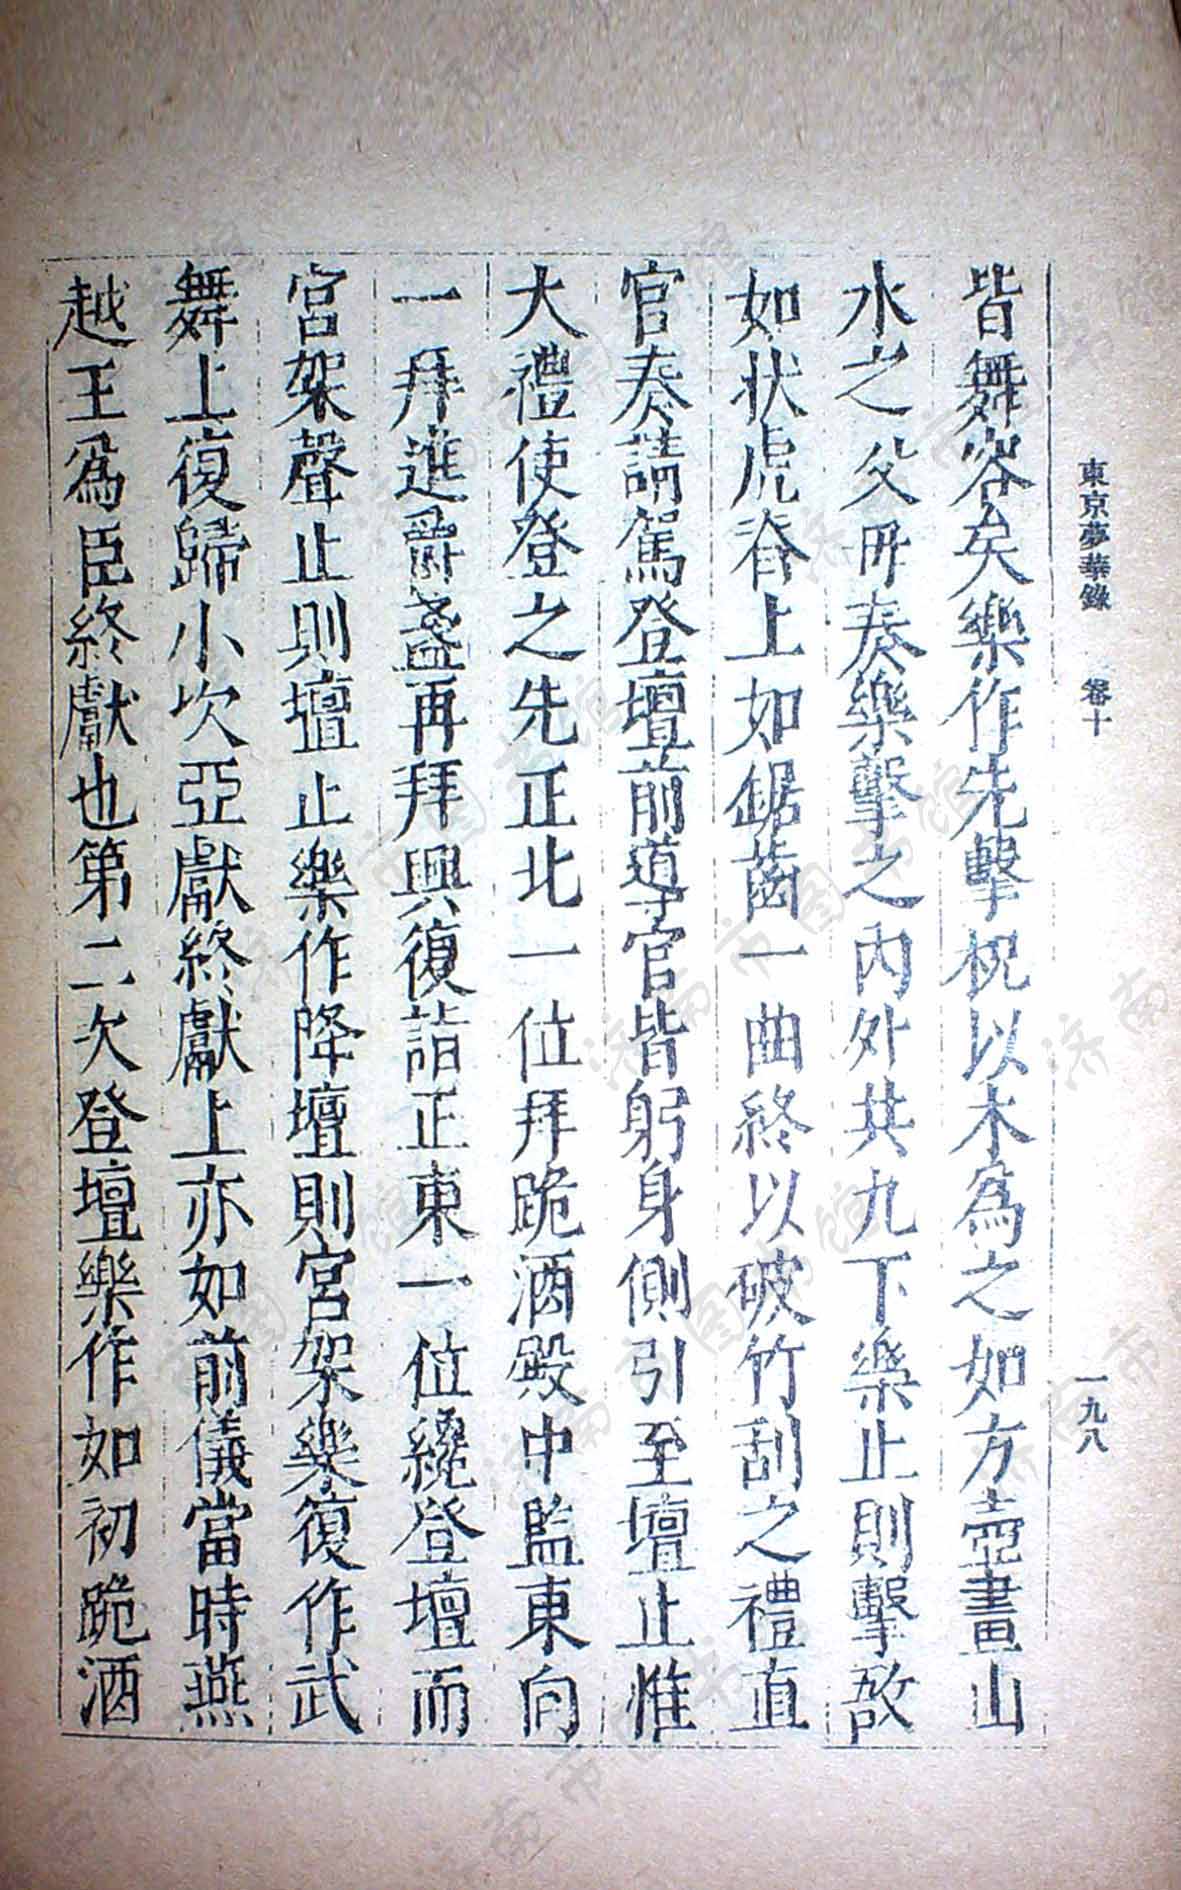 東京夢華錄 卷十 一九八
皆舞容矣樂作先擊柷以木爲之如方壺畫山
水之父毋奏樂擊之內外共九下樂止則擊敔
如状虎脊上如鋸齒一曲終以破竹刮之禮直
官奏請駕登壇前導官皆躬身側引至壇止惟
大禮使登之先正北一位拜跪酒殿中監東向
一拜進爵盞再拜興復詣正東一位纔登壇而
宮架聲止則壇止樂作降壇則宮架樂復作武
舞上復歸小次亞獻終獻上亦如前儀當時燕
越王爲臣終獻也第二次登壇樂作如初跪酒
济南市图书馆